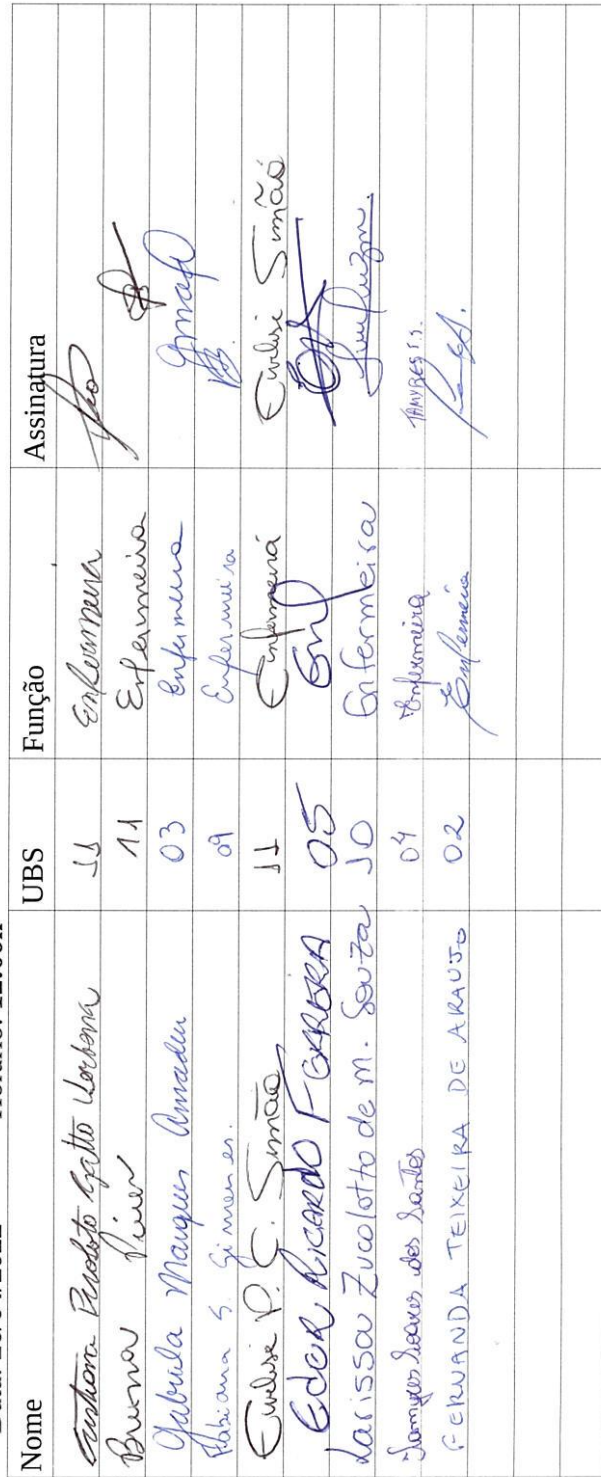 Nome UBS Função Assinatura
Cristiana Peroloto Gatto 11 Enfermeira
Bruna 11 Enfermeira
Gabriela Marques Amadeu 03 Enfermeira
Fabiana S. Gimenes. 09 Enfermeira
Evelise P. C. Simão 11 Enfermeira Evelise Simão
EDER RICARDO FERREIRA 05 Enf
Larissa Zucolotto de M. Souza 10 Enfermeira
Tamyres Soares dos Santos 04 Enfermeira TAMYRES S.S.
FERNANDA TEIXEIRA DE ARAUJO 02 Enfermeira